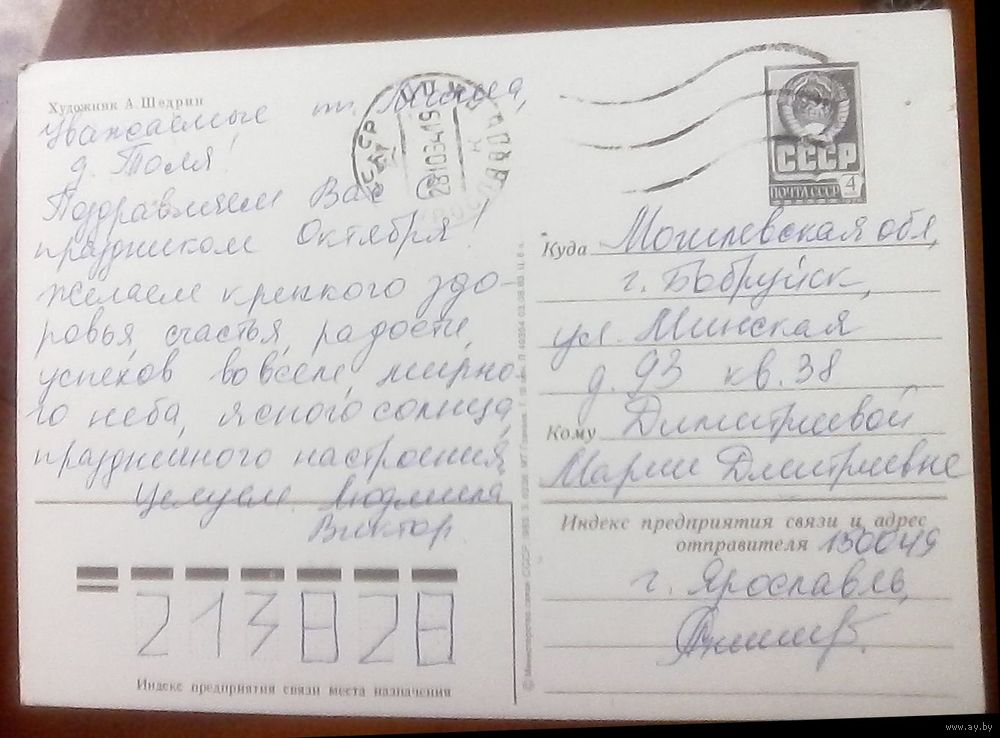 Художник А. Щедрин
Уважаемые тт.
д. Толя!
Поздравляем Вас с
праздником Октября!
Желаем крепкого здо-
ровья, счастья, радости,
успехов во всем, мирно-
го неба, ясного солнца,
праздничного настроения
Целуем. Людмила
Виктор.
213828
Индекс предприятия связи места назначения
СССР
ПОЧТА СССР 4
Куда Могилевская обл,
г. Бобруйск,
ул. Минская
д. 93 кв. 38
Кому Дмитриевой
Марии Дмитриевне
Индекс предприятия связи и адрес
отправителя 150049
г. Ярославль,
www.ay.by